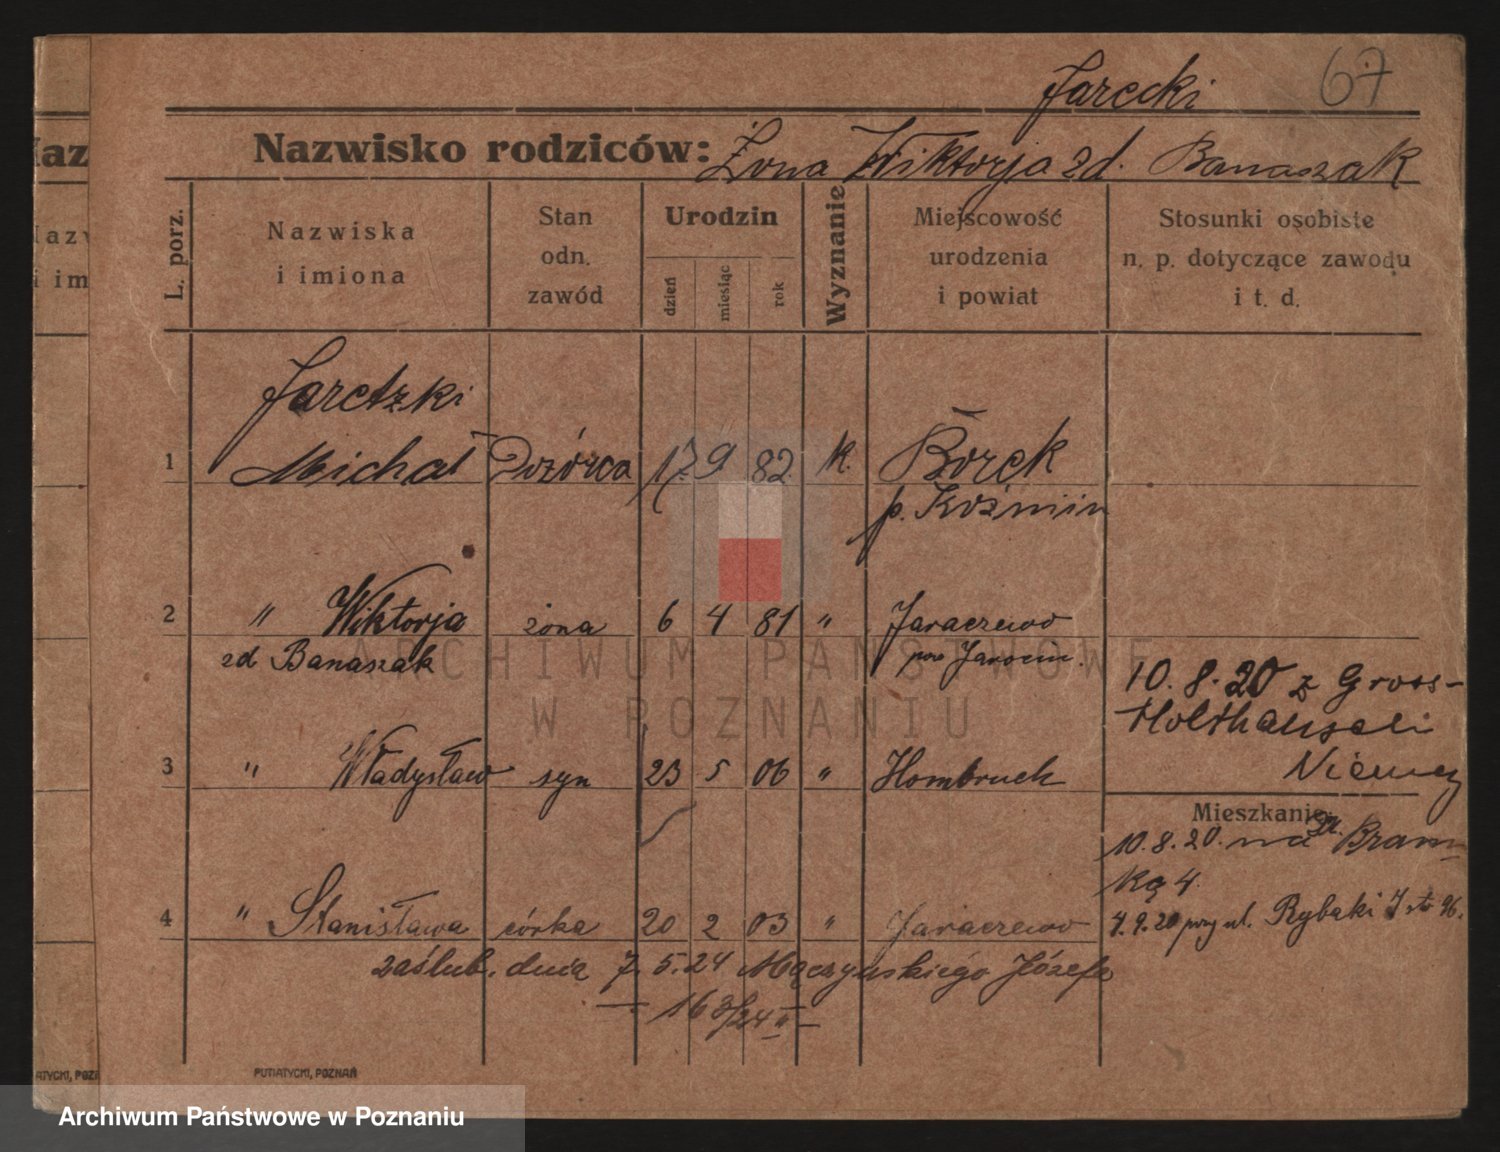 67
Jarecki
Nazwisko rodziców: Żona Wiktorja zd. Banaszak
L. porz.
Nazwiska i imiona
Stan odn. zawód
Urodzin
dzień
miesiąc
rok
Wyznanie
Miejscowość urodzenia i powiat
Stosunki osobiste n. p. dotyczące zawodu i t. d.
Jaretzki
1 Michał Dozórca 17. 9 82. k. Borek
p. Koźmin
2 " Wiktorja żona 6 4 81 " Jaraczewo
zd Banaszak pow Jarocin.
10. 8. 20 z Gross-
Holthausen
Niemcy
3 " Władysław syn 23 5 06 " Hombruch
Mieszkanie
10. 8. 20. na Bram
ką 4.
4 " Stanisława córka 20 2 03 " Jaraczewo
4. 9. 20 przy ul. Rybaki
zaślub. dnia 7. 5. 24 Mączyńskiego Józefa
163/24 II
PUTIATYCKI, POZNAŃ
ATYCKI, POZ
ARCHIWUM PAŃSTWOWE
W POZNANIU
Archiwum Państwowe w Poznaniu